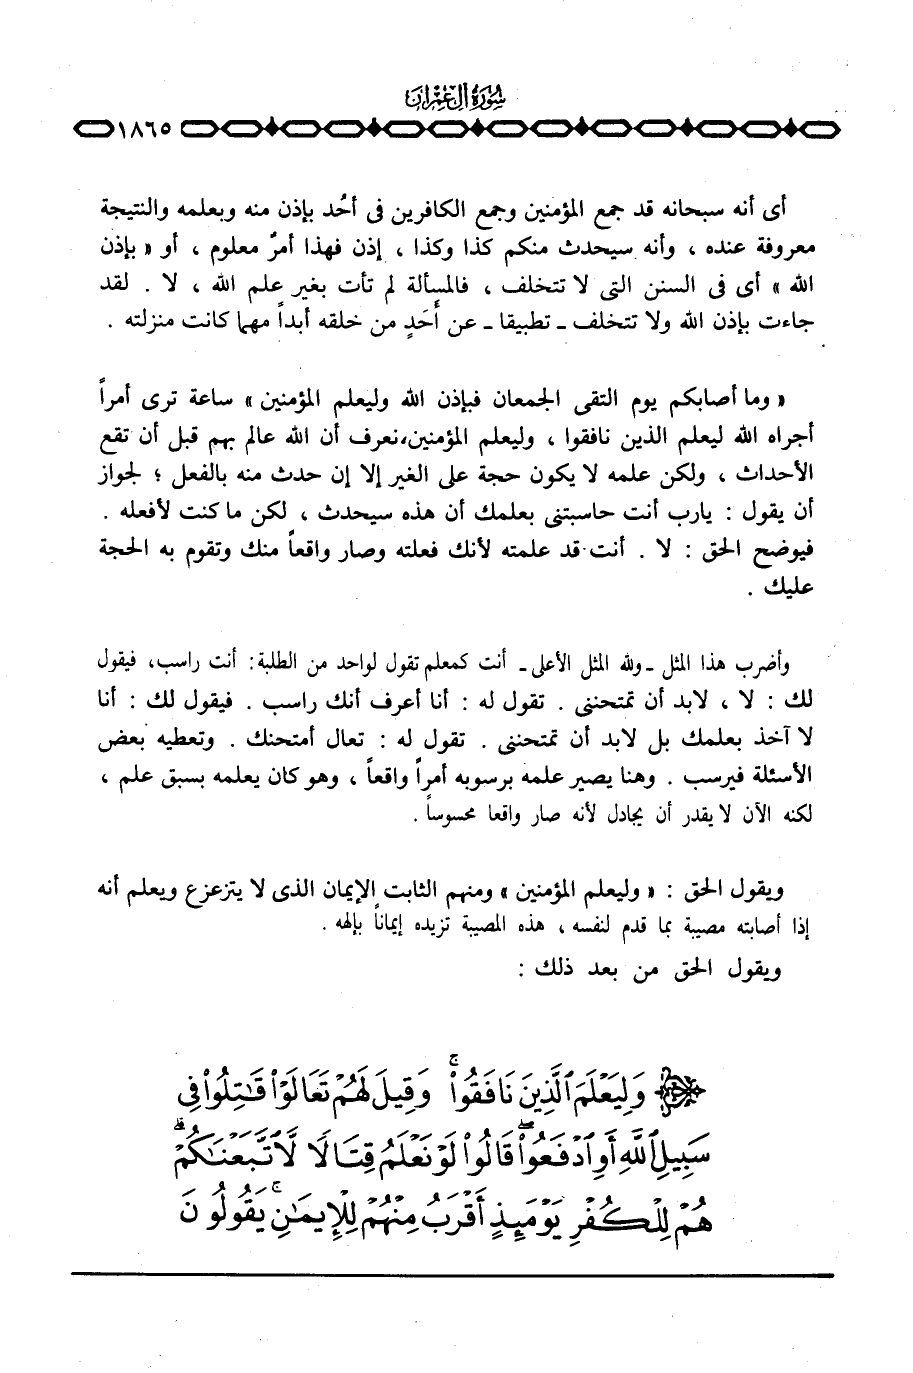 سُورَةُ آلِ عِمْرَانَ
١٨٦٥
أى أنه سبحانه قد جمع المؤمنين وجمع الكافرين فى أُحُد بإذن منه وبعلمه والنتيجة
معروفة عنده ، وأنه سيحدث منكم كذا وكذا ، إذن فهذا أمرٌ معلوم ، أو « بإذن
الله » أى فى السنن التى لا تتخلف ، فالمسألة لم تأت بغير علم الله ، لا . لقد
جاءت بإذن الله ولا تتخلف ـ تطبيقا ـ عن أَحَدٍ من خلقه أبداً مهما كانت منزلته .
« وما أصابكم يوم التقى الجمعان فبإذن الله وليعلم المؤمنين » ساعة ترى أمراً
أجراه الله ليعلم الذين نافقوا ، وليعلم المؤمنين،نعرف أن الله عالم بهم قبل أن تقع
الأحداث ، ولكن علمه لا يكون حجة على الغير إلا إن حدث منه بالفعل ؛ لجواز
أن يقول : يارب أنت حاسبتنى بعلمك أن هذه سيحدث ، لكن ما كنت لأفعله .
فيوضح الحق : لا . أنت قد علمته لأنك فعلته وصار واقعاً منك وتقوم به الحجة
عليك .
وأضرب هذا المثل ـ ولله المثل الأعلى ـ أنت كمعلم تقول لواحد من الطلبة: أنت راسب، فيقول
لك : لا ، لابد أن تمتحننى . تقول له : أنا أعرف أنك راسب . فيقول لك : أنا
لا آخذ بعلمك بل لابد أن تمتحننى . تقول له : تعال أمتحنك . وتعطيه بعض
الأسئلة فيرسب . وهنا يصير علمه برسوبه أمراً واقعاً ، وهو كان يعلمه بسبق علم ،
لكنه الآن لا يقدر أن يجادل لأنه صار واقعا محسوساً .
ويقول الحق : « وليعلم المؤمنين » ومنهم الثابت الإيمان الذى لا يتزعزع ويعلم أنه
إذا أصابته مصيبة بما قدم لنفسه ، هذه المصيبة تزيده إيماناً بإلهه .
ويقول الحق من بعد ذلك :
وَلِيَعْلَمَ ٱلَّذِينَ نَافَقُوا۟ ۚ وَقِيلَ لَهُمْ تَعَالَوْا۟ قَـٰتِلُوا۟ فِى
سَبِيلِ ٱللَّهِ أَوِ ٱدْفَعُوا۟ ۖ قَالُوا۟ لَوْ نَعْلَمُ قِتَالًا لَّٱتَّبَعْنَـٰكُمْ ۗ
هُمْ لِلْكُفْرِ يَوْمَئِذٍ أَقْرَبُ مِنْهُمْ لِلْإِيمَـٰنِ ۚ يَقُولُونَ